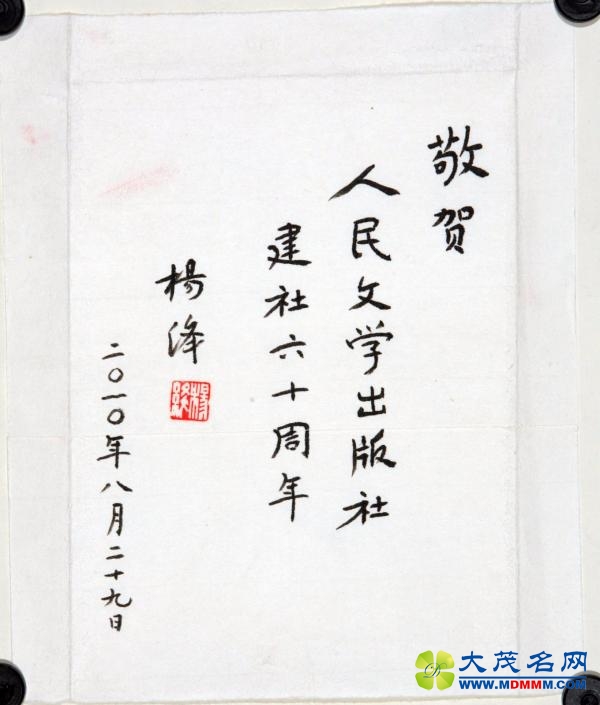 敬贺
人民文学出版社
建社六十周年
楊绛
二〇一〇年八月二十九日
大茂名网
WWW.MDMMM.COM